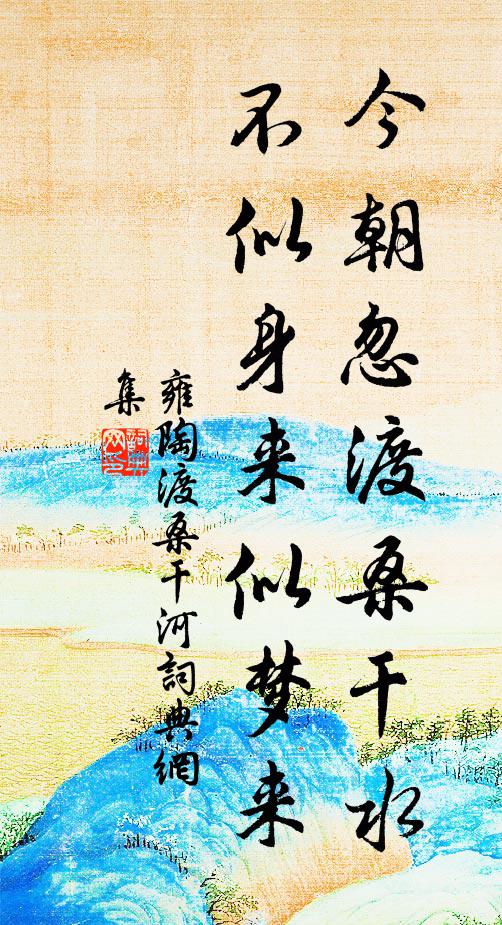 今朝忽渡桑干水
不似身来似梦来
雍陶渡桑干河詞典網
集